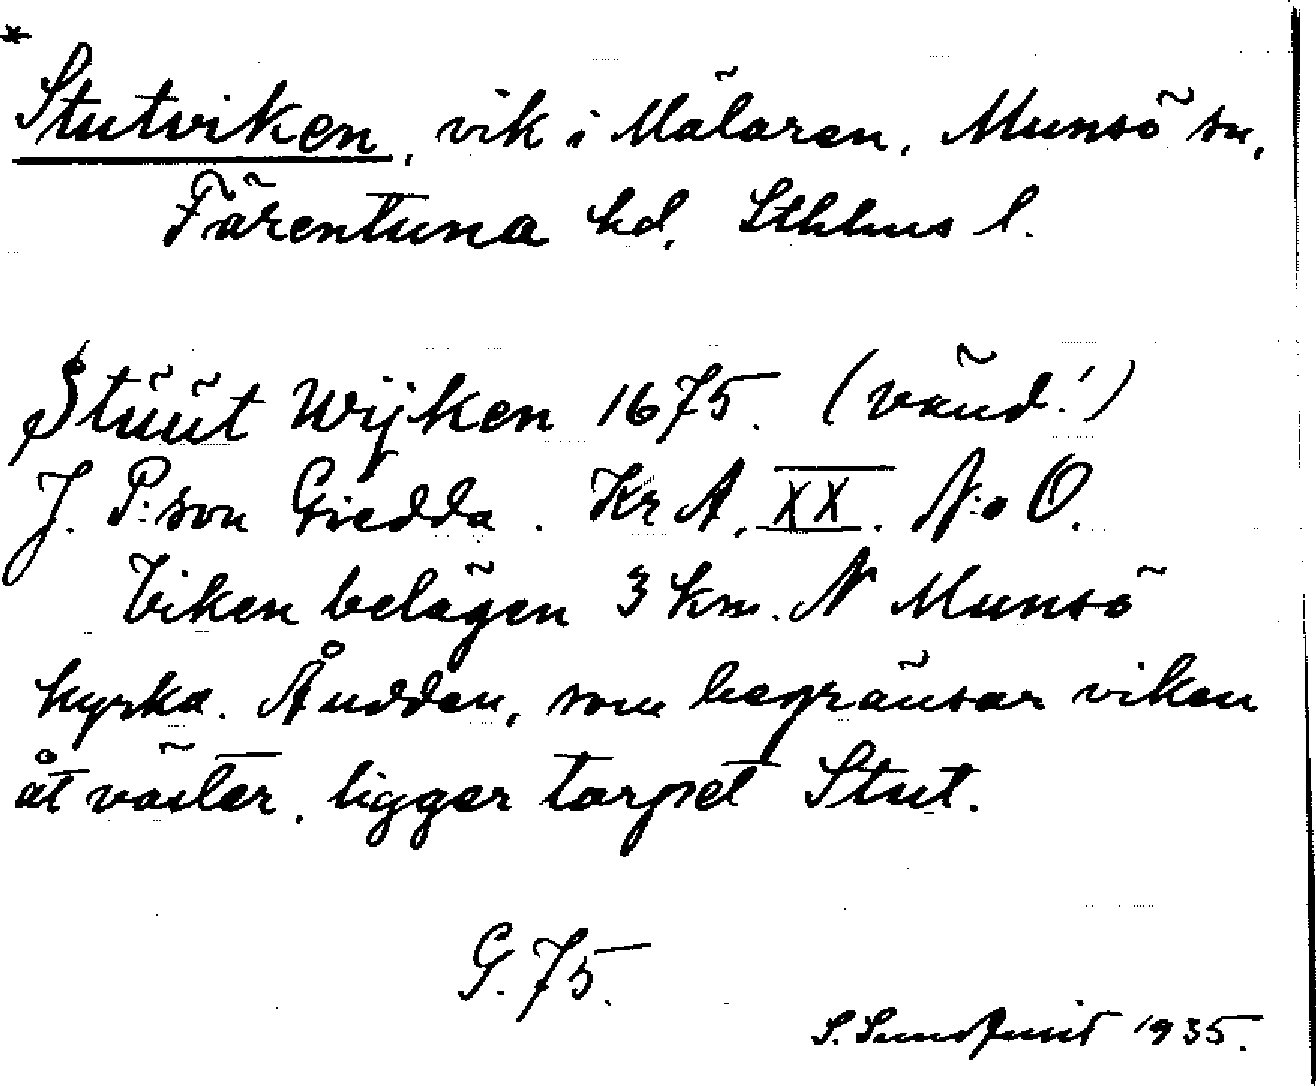 *
Stutviken, vik i Mälaren, Munsö sn,
Färentuna hd, Sthlms l.
Stüüt Wijken 1675. (vänd!)
J. P:son Giedda. Kr A, XX. N:o O.
Viken belägen 3 km. N Munsö
kyrka. Å udden, som begränsar viken
åt väster, ligger torpet Stut.
G. 75.
S. Sundquist 1935.